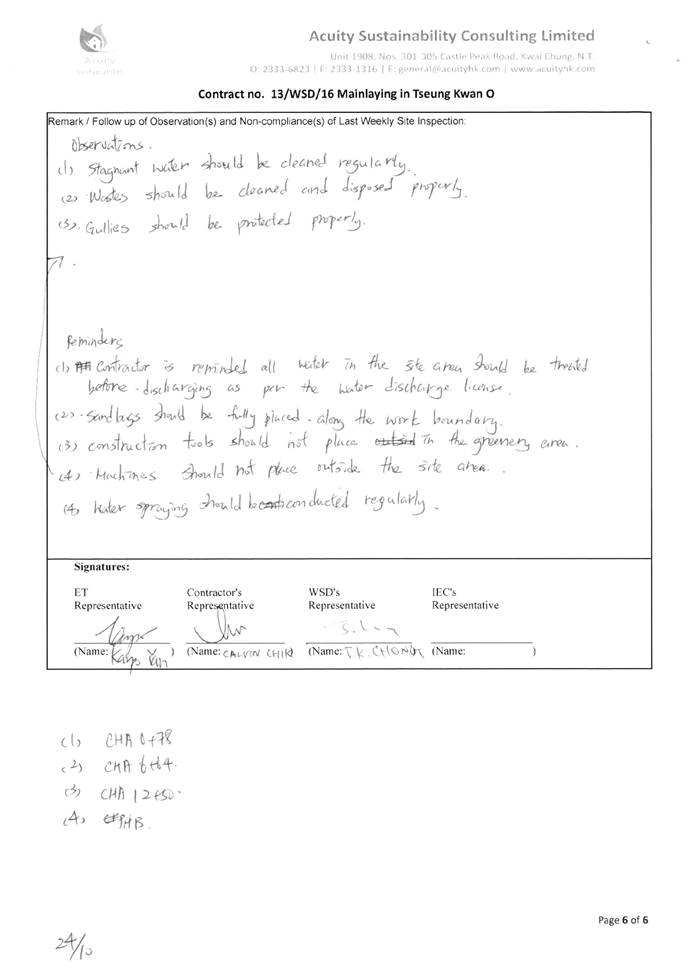 Acuity
Sustainability
Acuity Sustainability Consulting Limited
Unit 1908, Nos. 301-305 Castle Peak Road, Kwai Chung, N.T.
O: 2333-6823 | F: 2333-1316 | E: general@acuityhk.com | www.acuityhk.com
Contract no. 13/WSD/16 Mainlaying in Tseung Kwan O
Remark / Follow up of Observation(s) and Non-compliance(s) of Last Weekly Site Inspection:
Observations.
(1) Stagnant water should be cleaned regularly.
(2) Wastes should be cleaned and disposed properly.
(3). Gullies should be protected properly.
Reminders
(1) Contractor is reminded all water in the site area should be treated
before discharging as per the water discharge license.
(2). Sandbags should be fully placed along the work boundary.
(3) construction tools should not place in the greenery area.
(4) Machines should not place outside the site area.
(4) Water spraying should be conducted regularly.
Signatures:
ET Representative
Contractor's Representative
WSD's Representative
IEC's Representative
(Name: )
(Name: CALVIN CHIK)
(Name: T.K. CHONG
(Name: )
(1) CHA 0+78
(2) CHA
(3) CHA 12+50.
(4) PHB.
Page 6 of 6
24/10